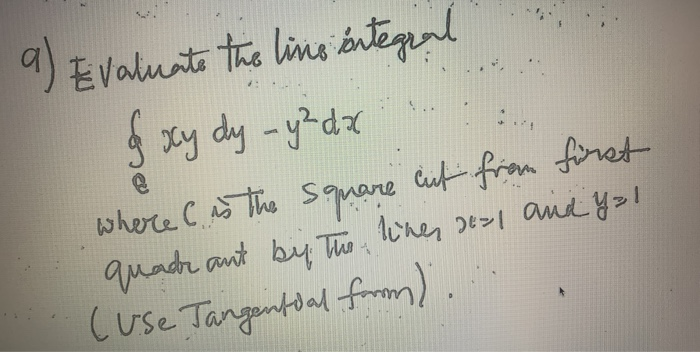 a) Evaluate the line integral
∮ xy dy - y²dx
C
where C is the square cut from first
quadrant by the lines x=1 and y=1
(Use Tangential form).